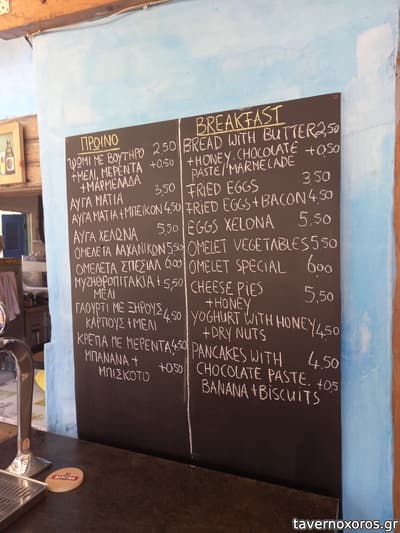 ΠΡΩΙΝΟ
ΨΩΜΙ ΜΕ ΒΟΥΤΗΡΟ 2,50
+ΜΕΛΙ, ΜΕΡΕΝΤΑ +0,50
+ΜΑΡΜΕΛΑΔΑ
ΑΥΓΑ ΜΑΤΙΑ 3,50
ΑΥΓΑ ΜΑΤΙΑ+ΜΠΕΙΚΟΝ 4,50
ΑΥΓΑ ΧΕΛΩΝΑ 5,50
ΟΜΕΛΕΤΑ ΛΑΧΑΝΙΚΩΝ 5,50
ΟΜΕΛΕΤΑ ΣΠΕΣΙΑΛ 6,00
ΜΥΖΗΘΡΟΠΙΤΑΚΙΑ+ 5,50
ΜΕΛΙ
ΓΙΑΟΥΡΤΙ ΜΕ ΞΗΡΟΥΣ
ΚΑΡΠΟΥΣ+ΜΕΛΙ 4,50
ΚΡΕΠΑ ΜΕ ΜΕΡΕΝΤΑ 4,50
ΜΠΑΝΑΝΑ+
ΜΠΙΣΚΟΤΟ +0,50
BREAKFAST
BREAD WITH BUTTER 2,50
+HONEY. CHOCOLATE +0,50
PASTE/MARMELADE
FRIED EGGS 3,50
FRIED EGGS+BACON 4,50
EGGS XELONA 5,50
OMELET VEGETABLES 5,50
OMELET SPECIAL 6,00
CHEESE PIES
+HONEY 5,50
YOGHURT WITH HONEY
+DRY NUTS 4,50
PANCAKES WITH 4,50
CHOCOLATE PASTE. +0,5
BANANA+BISCUITS
tavernoxoros.gr